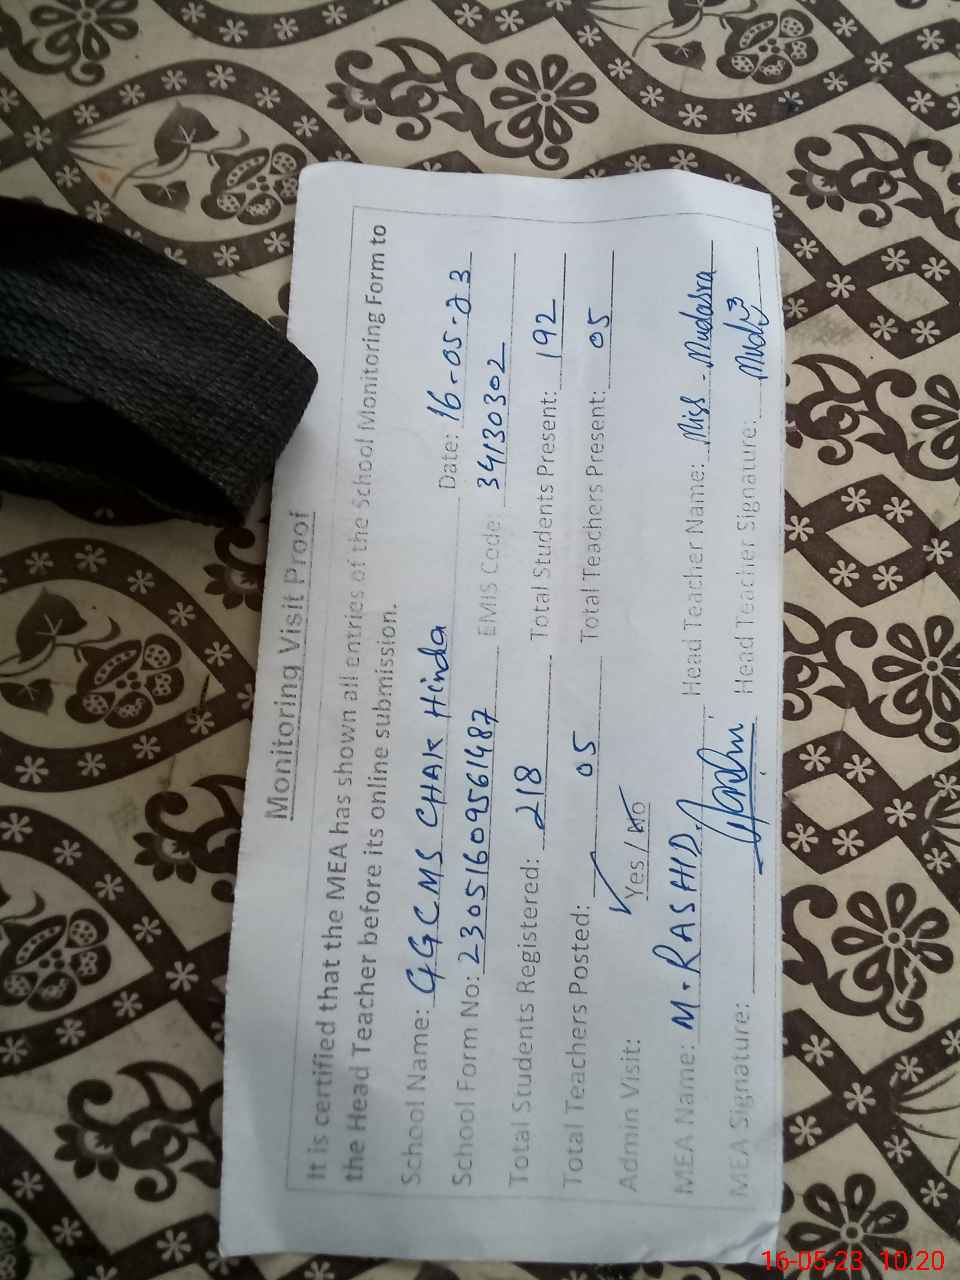 Monitoring Visit Proof
It is certified that the MEA has shown all entries of the School Monitoring Form to
the Head Teacher before its online submission.
School Name: GGCMS CHAK Hinda Date: 16-05-23
School Form No: 23051609561487 EMIS Code: 34130302
Total Students Registered: 218 Total Students Present: 192
Total Teachers Posted: 05 Total Teachers Present: 05
Admin Visit: Yes / No
MEA Name: M. RASHID Head Teacher Name: Miss. Mudasra
MEA Signature: Head Teacher Signature:
16-05-23 10:20